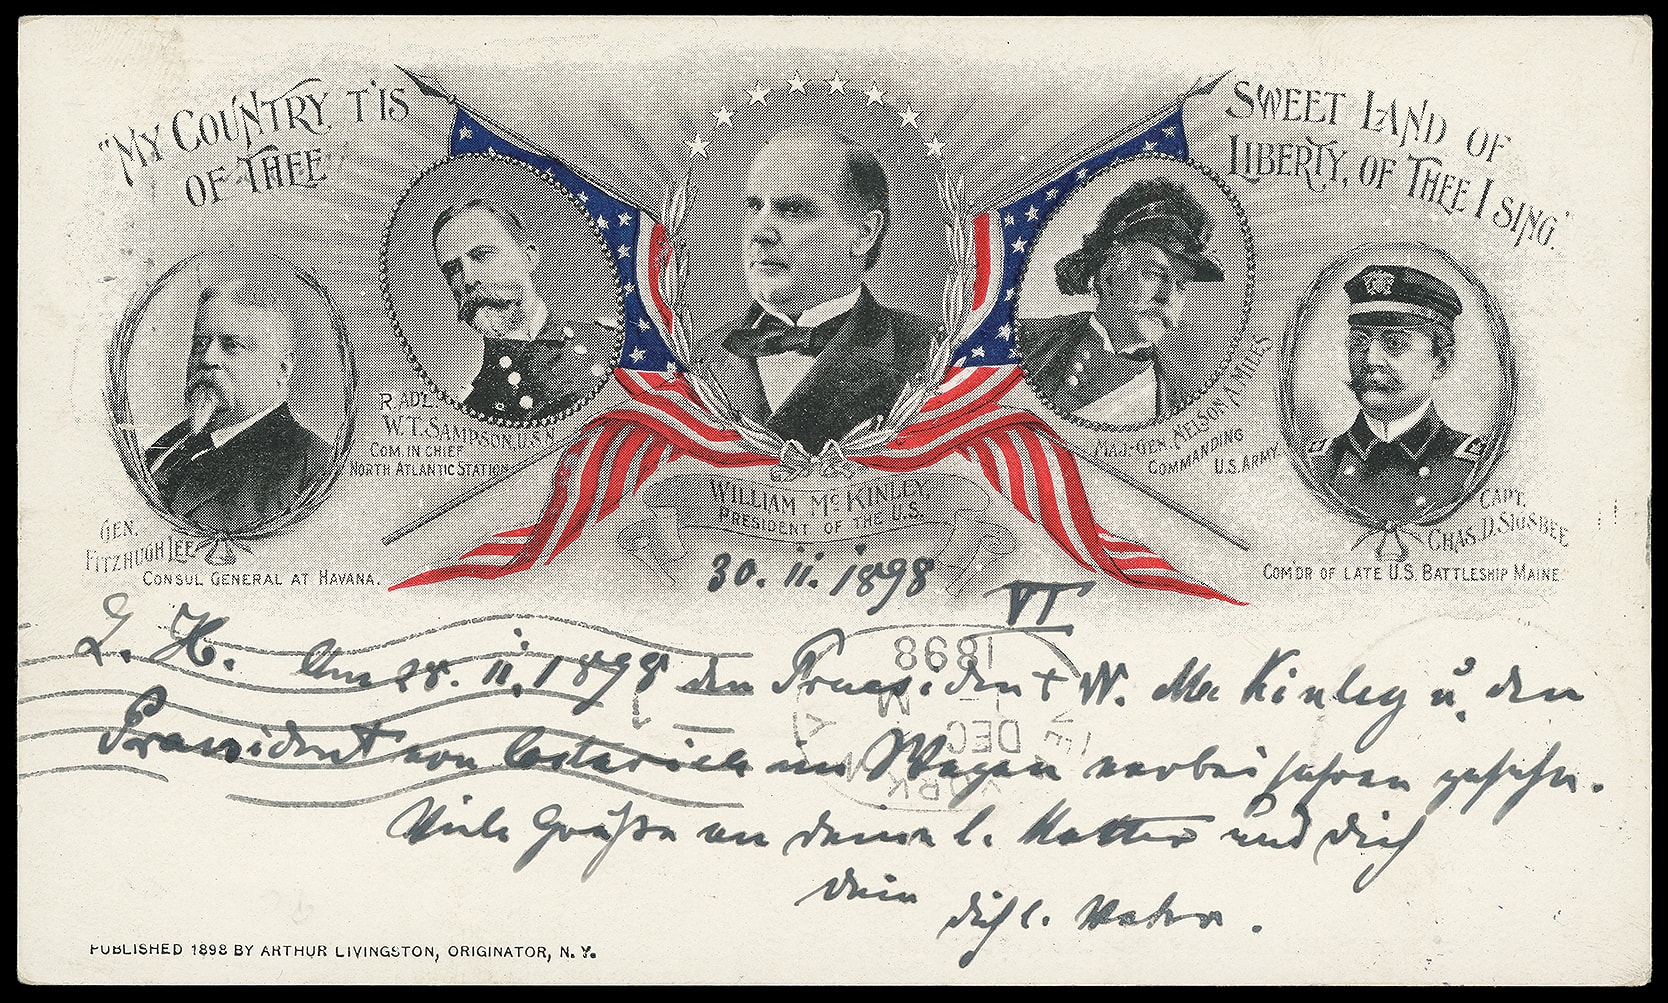 "MY COUNTRY T'IS
OF THEE
SWEET LAND OF
LIBERTY, OF THEE I SING."
GEN.
FITZHUGH LEE
CONSUL GENERAL AT HAVANA.
R. AD'L.
W. T. SAMPSON, U.S.N.
COM. IN CHIEF
NORTH ATLANTIC STATION
WILLIAM McKINLEY,
PRESIDENT OF THE U.S.
MAJ-GEN. NELSON A. MILES
COMMANDING
U.S. ARMY
CAPT.
CHAS. D. SIGSBEE
COM'DR OF LATE U.S. BATTLESHIP MAINE
30. 11. 1898
VI
L. H. Am 28. 11. 1898 den Praesident W. Mc Kinley u. den
Praesident von Costarica im Wagen vorbei fahren gesehn.
Viele Grüße an deine l. Mutter und dich
dein dich l. Vater.
1898
DEC
YORK
PUBLISHED 1898 BY ARTHUR LIVINGSTON, ORIGINATOR, N. Y.